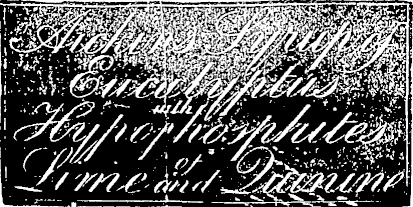 Aitkens Syrup of
Eucalyptus
with
Hypophosphites
of
Lime and Quinine